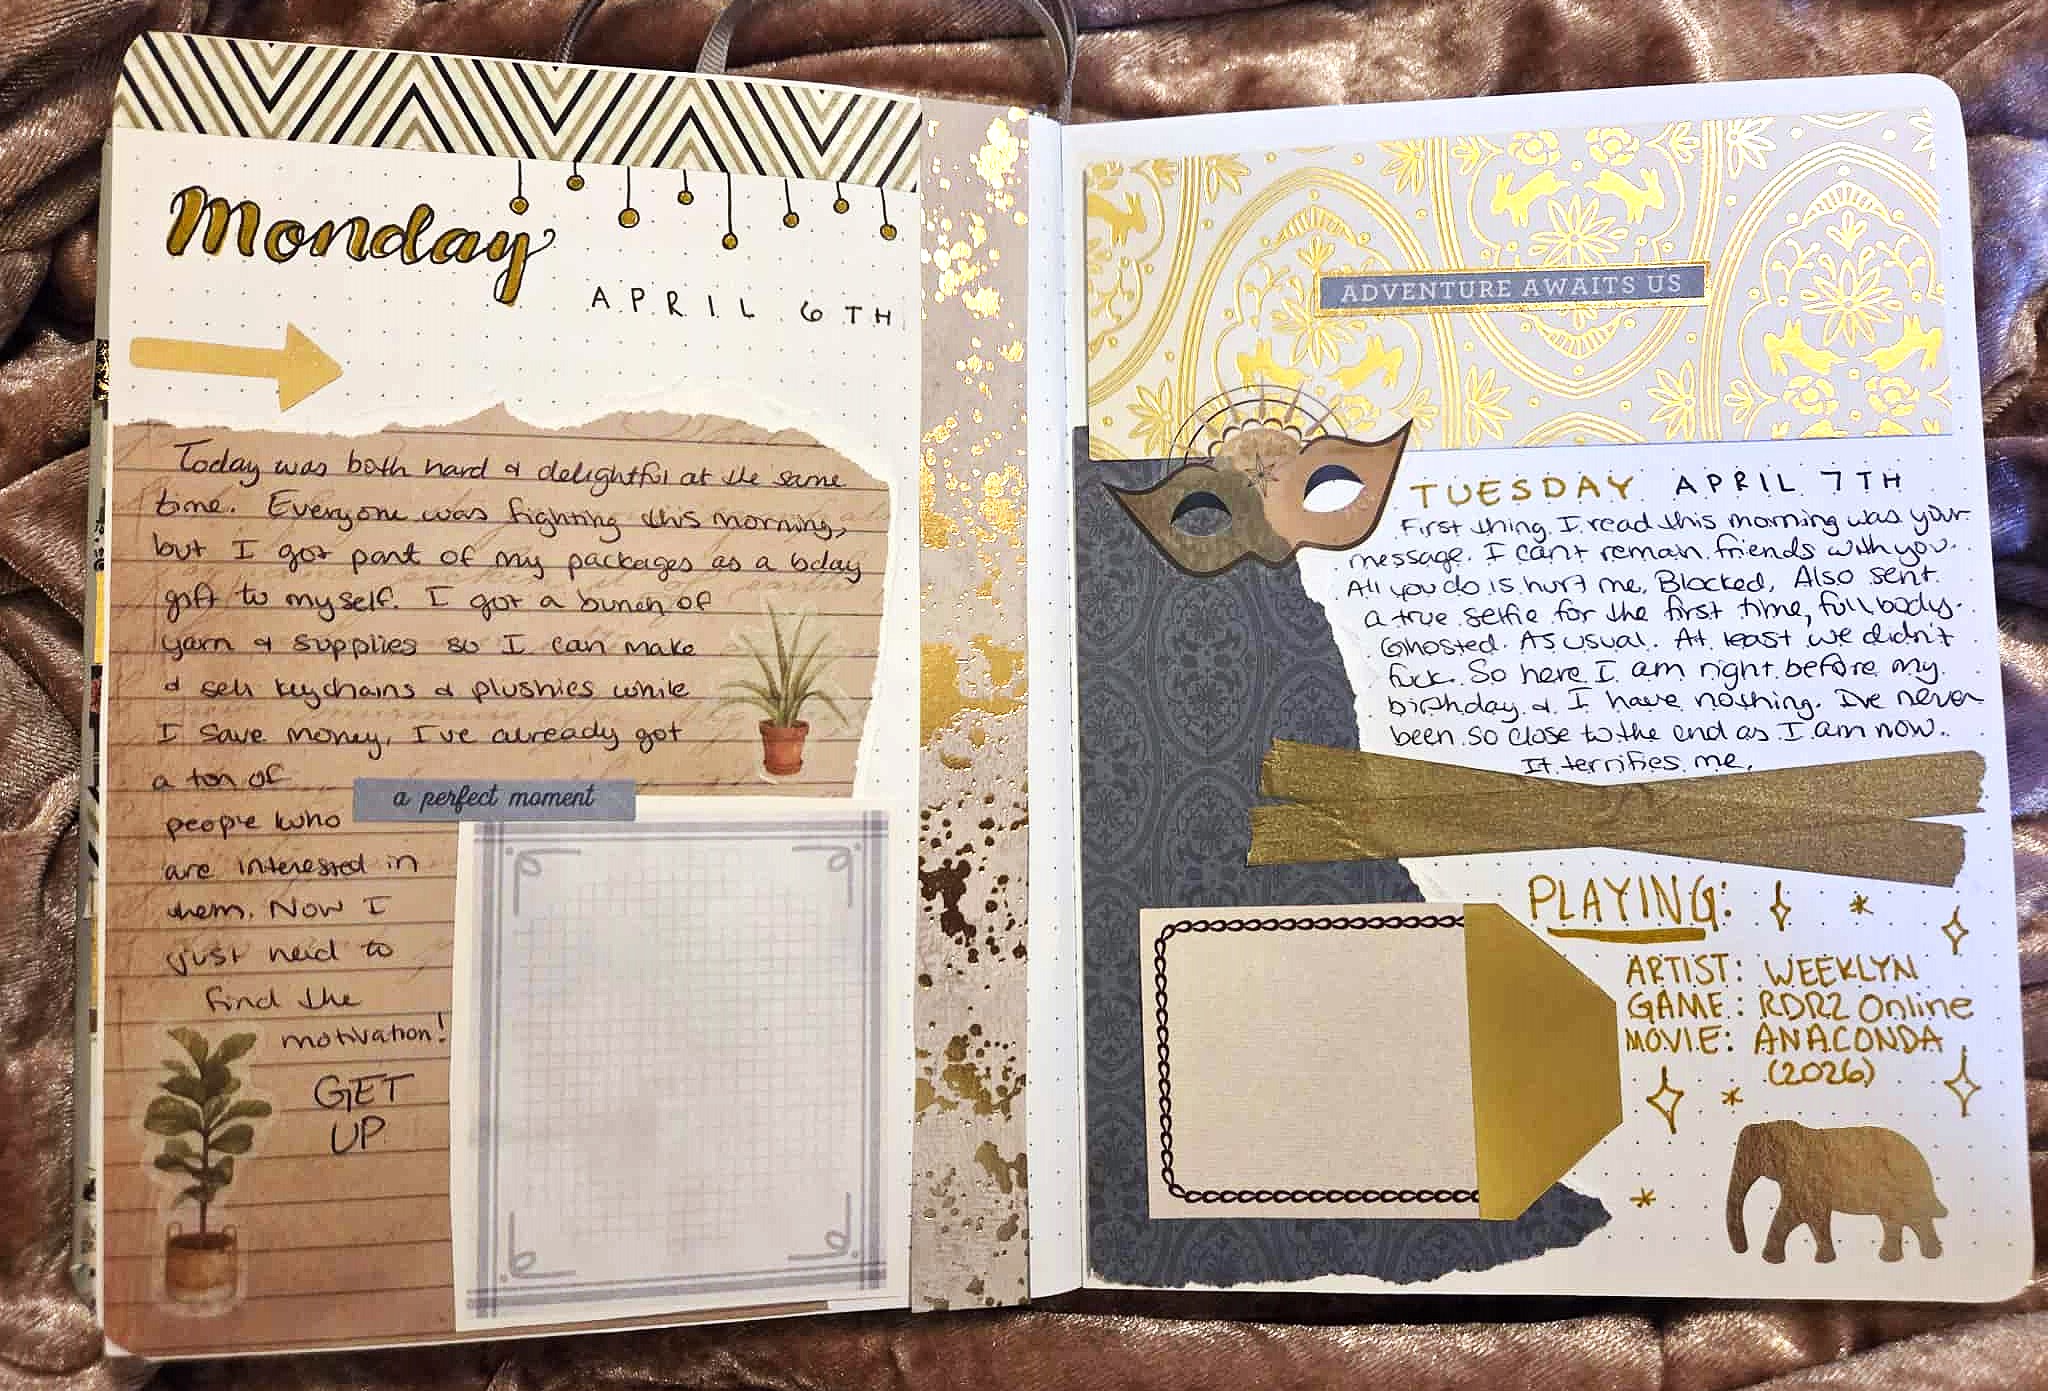 Monday
APRIL 6TH
Today was both hard & delightful at the same
time. Everyone was fighting this morning,
but I got part of my packages as a bday
gift to myself. I got a bunch of
yarn & supplies so I can make
& sell keychains & plushies while
I save money, I've already got
a ton of
people who
are interested in
them. Now I
just need to
find the
motivation!
GET
UP
a perfect moment
ADVENTURE AWAITS US
TUESDAY APRIL 7TH
First thing I read this morning was your
message. I can't remain friends with you.
All you do is hurt me. Blocked, Also sent
a true selfie for the first time, full body.
Ghosted. As usual. At least we didn't
fuck. So here I am right before my
birthday & I have nothing. I've never
been so close to the end as I am now.
It terrifies me.
PLAYING:
ARTIST: WEEKLYN
GAME: RDR2 Online
MOVIE: ANACONDA
(2026)